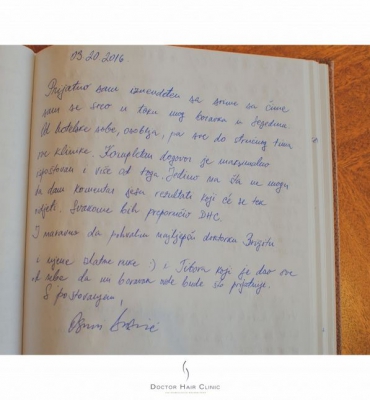 09.20.2016
Prijatno sam iznenađen sa svim sa čime
sam se sreo u toku mog boravka u Segedinu
Od hotelske sobe, osoblja, pa sve do stručnog tima
ove klinike. Kompletan dogovor je maximalno
ispoštovan i više od toga. Jedino na šta ne mogu
da dam komentar jesu rezultati koji će se tek
vidjeti. Svakome bih preporučio DHC.
I naravno da pohvalim najljepšu doktorku
i njene zlatne ruke :) i Tibora koji je dao sve
od sebe da mi boravak ovde bude što prijatniji.
S poštovanjem,
DOCTOR HAIR CLINIC